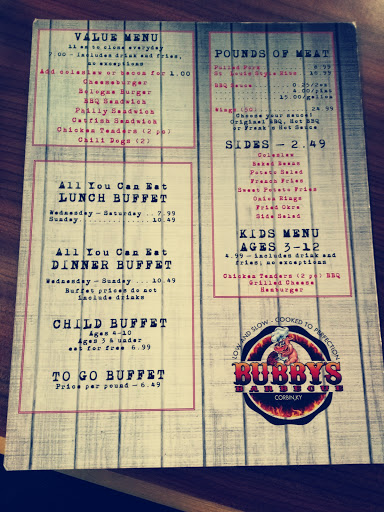 VALUE MENU
11 am to close everyday
7.00 - includes drink and fries,
no exceptions
Add coleslaw or bacon for 1.00
Cheeseburger
Bologna Burger
BBQ Sandwich
Philly Sandwich
Catfish Sandwich
Chicken Tenders (2 pc)
Chili Dogs (2)
All You Can Eat
LUNCH BUFFET
Wednesday - Saturday .. 7.99
Sunday.............10.49
All You Can Eat
DINNER BUFFET
Wednesday - Sunday ... 10.49
Buffet prices do not
include drinks
CHILD BUFFET
Ages 4-10
Ages 3 & under
eat for free 6.99
TO GO BUFFET
Price per pound - 6.49
POUNDS OF MEAT
Pulled Pork
St. Louis Style Ribs
BBQ Sauce
4.00/pint
15.00/gallon
Wings (50)
Choose your sauce!
Original BBQ, Hot BBQ
or Frank's Hot Sauce
SIDES - 2.49
Coleslaw
Baked Beans
Potato Salad
French Fries
Sweet Potato Fries
Onion Rings
Fried Okra
Side Salad
KIDS MENU
AGES 3-12
4.99 - includes drink and
fries, no exceptions
Chicken Tenders (2 pc) BBQ
Grilled Cheese
Hamburger
LOW AND SLOW - COOKED TO PERFECTION
BUBBYS
BARBECUE
CORBIN,KY